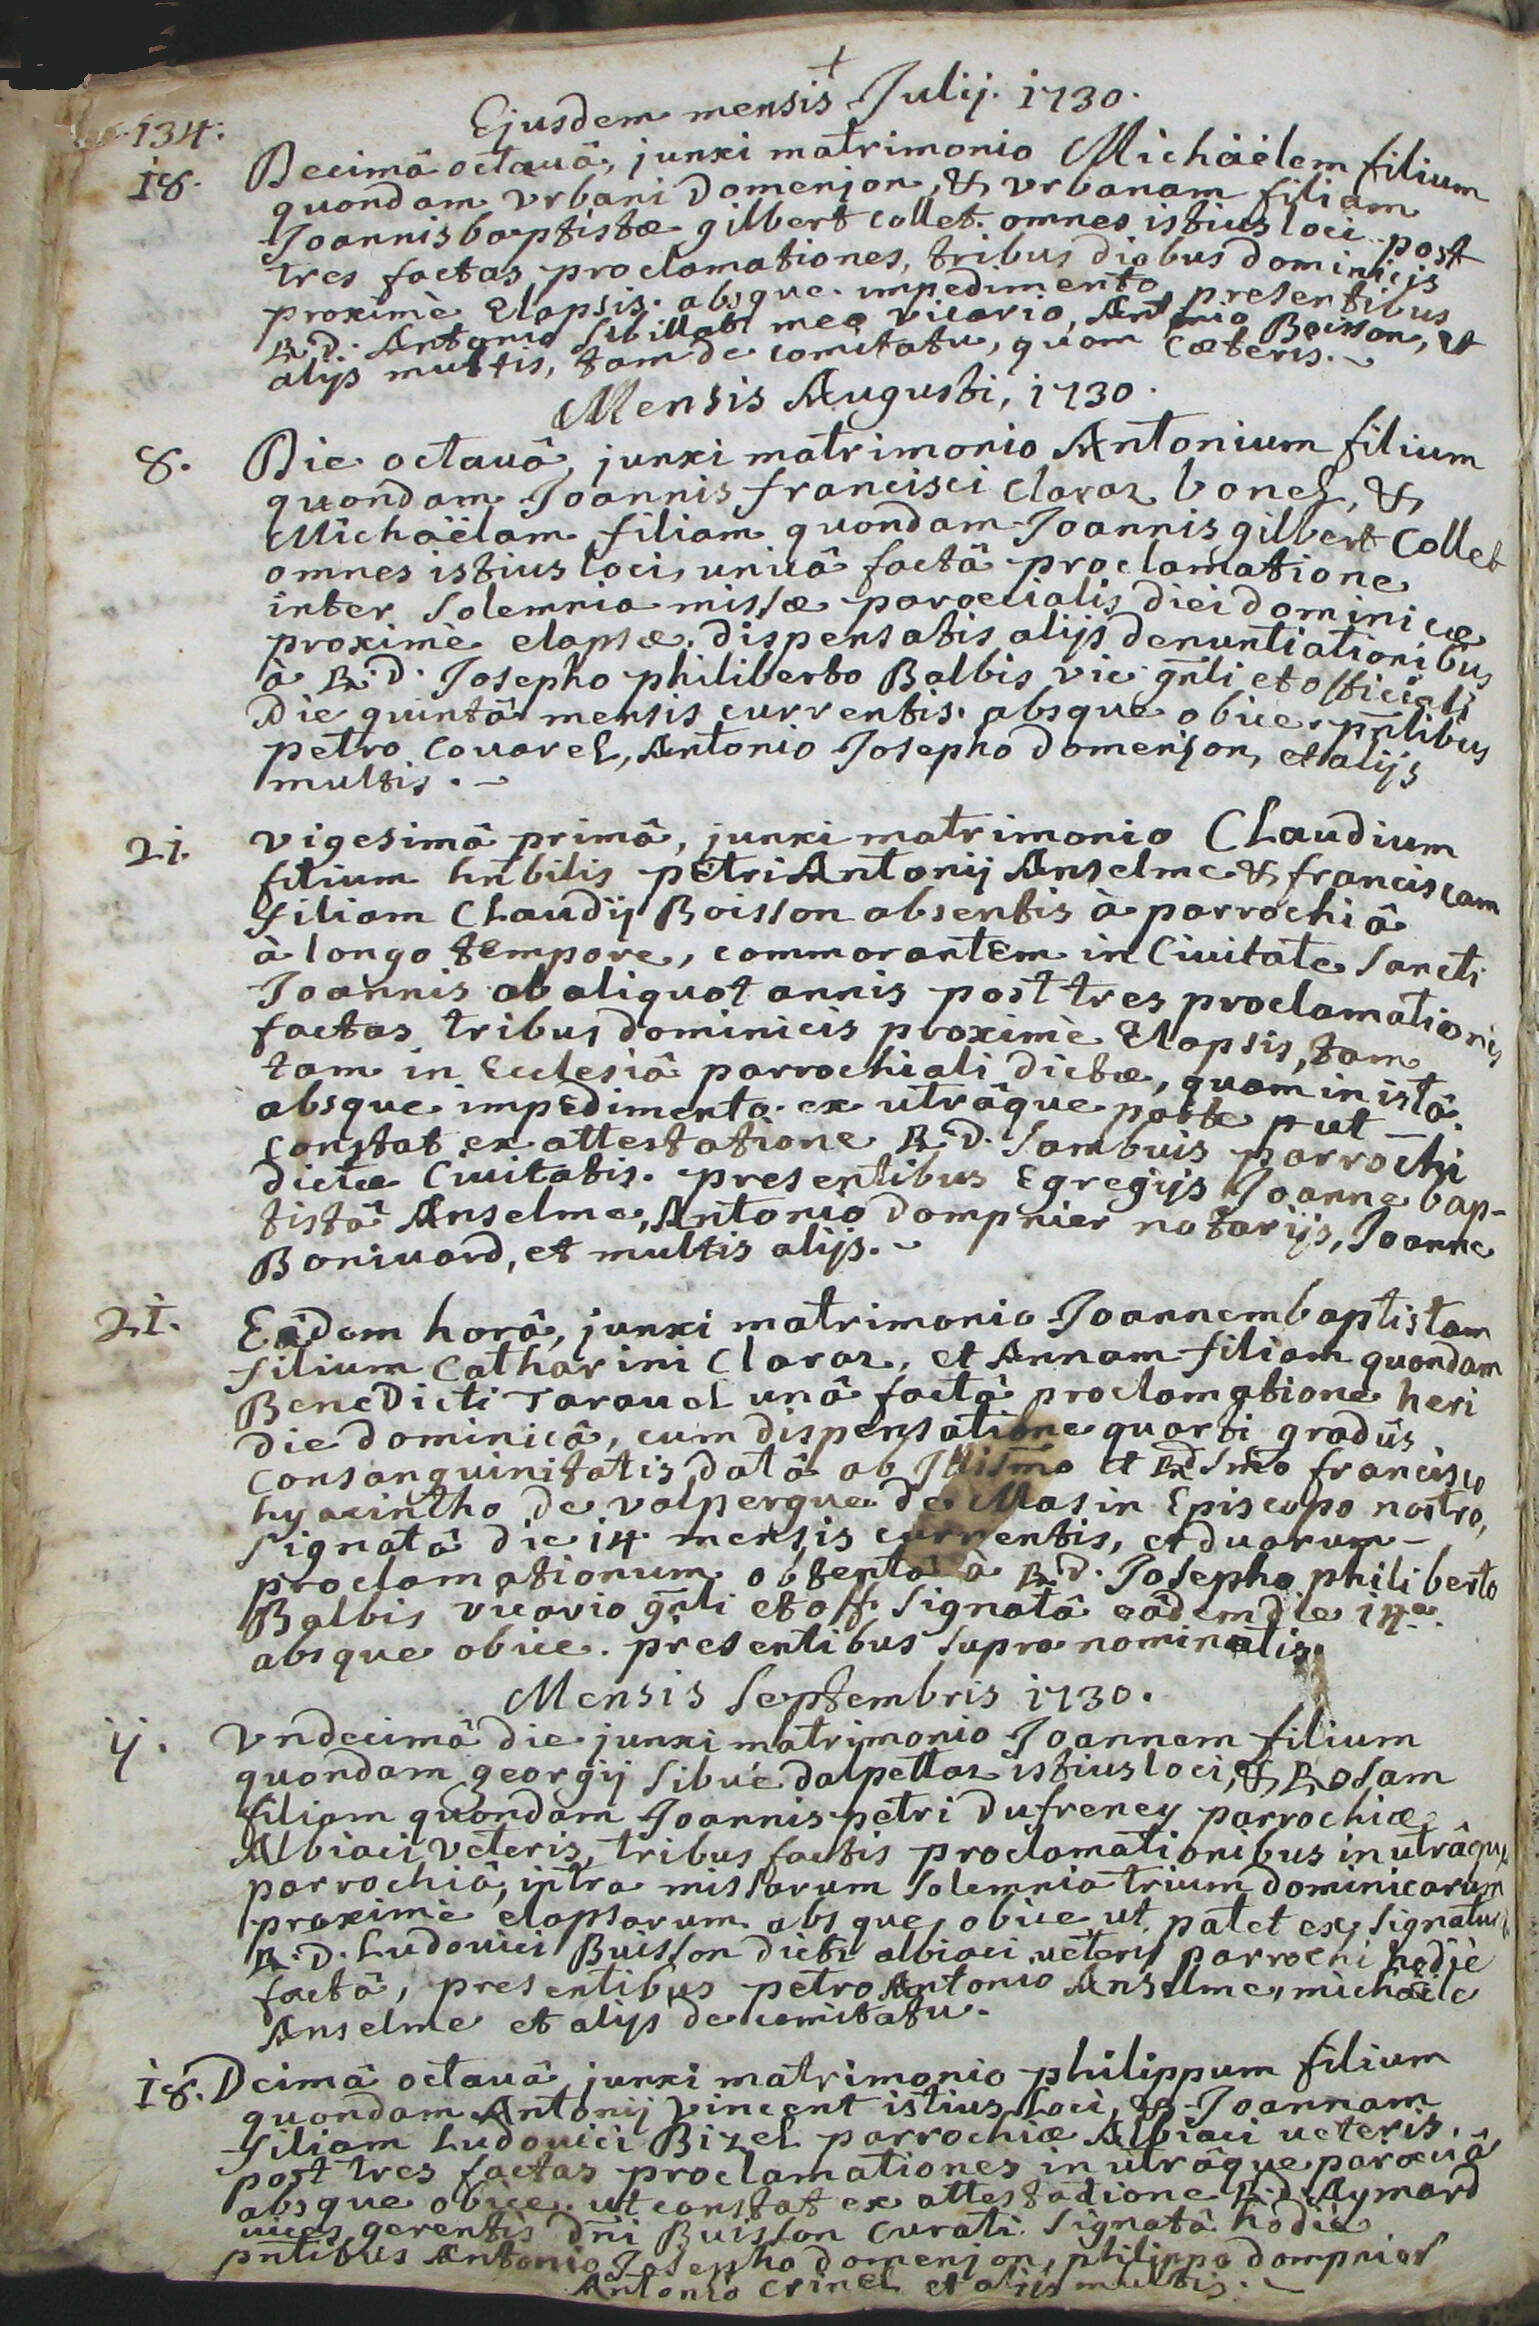 +
Ejusdem mensis Julij. 1730.
134.
18. Decimâ octauâ, junxi matrimonio Michaëlem filium
quondam vrbani Domenjon, & vrbanam filiam
Joannisbaptistæ gilbert collet. omnes istius loci post
tres factas proclamationes, tribus diebus dominicis
proximè Elapsis. absque impedimento, presentibus
R.D. Antonio Sibillat meo vicario, Antonio Boisson, et
alijs multis, tam de comitatu, quam cæteris.
Mensis Augusti, 1730.
8. Die octauâ, junxi matrimonio Antonium filium
quondam Joannis francisci claraz bonel, &
Michaëlam filiam quondam Joannis gilbert Collet
omnes istius loci, unicâ factâ proclamatione
inter solemnia missæ paroecialis diei dominicæ
proximè elapsæ. dispensatis alijs denuntiationibus
à R.D. Josepho philiberto Balbis vic. gnli et officiali
Die quintâ mensis currentis. absque obice. pntibus
petro Couarel, Antonio Josepho domenjon, et alijs
multis.
21. vigesimâ primâ, junxi matrimonio Claudium
filium hnbilis petri Antonij Anselme & franciscam
filiam Claudij Boisson absentis à parrochiâ
à longo tempore, commorantem in Ciuitate Sancti
Joannis ab aliquot annis post tres proclamationes
factas tribus dominicis proximè Elapsis, tam
tam in Ecclesiâ parrochiali dictæ, quam in istâ.
absque impedimento. ex utrâque parte put
constat ex attestatione R.D. Sambuis parrochi
dictæ Ciuitatis. presentibus Egregijs Joanne bap-
tistâ Anselme, Antonio dompnier notarijs, Joanne
Boniuard, et multis alijs.
21. Eâdem horâ, junxi matrimonio Joannembaptistam
filium Catharini Claraz, et Annam filiam quondam
Benedicti Tarauel unâ factâ proclamatione heri
die dominicâ, cum dispensatione quarti gradûs
consanguinitatis datâ ab Illismo et Rdsmo francisco
hyacintho de valpergue de Masin Episcopo nostro,
signatâ die 14 mensis currentis, et duarum
proclamationum obtentâ à R.D. Josepho philiberto
Balbis vicario gnli et off. signatâ eâdem die 14a.
absque obice. presentibus supra nominatis.
Mensis Septembris 1730.
ij. vndecimâ die junxi matrimonio Joannem filium
quondam georgij Sibué dalpettaz istius loci, & Rosam
filiam quondam Joannis petri Dufreney parrochiæ
Albiaci veteris, tribus factis proclamationibus in utrâque
parrochiâ, intra missarum solemnia trium dominicarum
proximè elapsarum. absque obice ut patet ex signatu
R.D. Ludouici Buisson dicti albiaci ueteris parrochi hodiè
factâ, presentibus petro Antonio Anselme, michaële
Anselme et alijs de comitatu.
18. Dcimâ octauâ junxi matrimonio philippum filium
quondam Antonij Vincent istius loci, & Joannam
filiam Ludouici Bizel parrochiæ Albiaci ueteris.
post tres factas proclamationes in utrâque paroeciâ
absque obice. ut constat ex attestatione R.D. Aymard
uices gerentis dni Buisson Curati. signatâ hodiè
pntibus Antonio Josepho domenjon, philippo dompnier
Antonio Crinel et alijs multis.